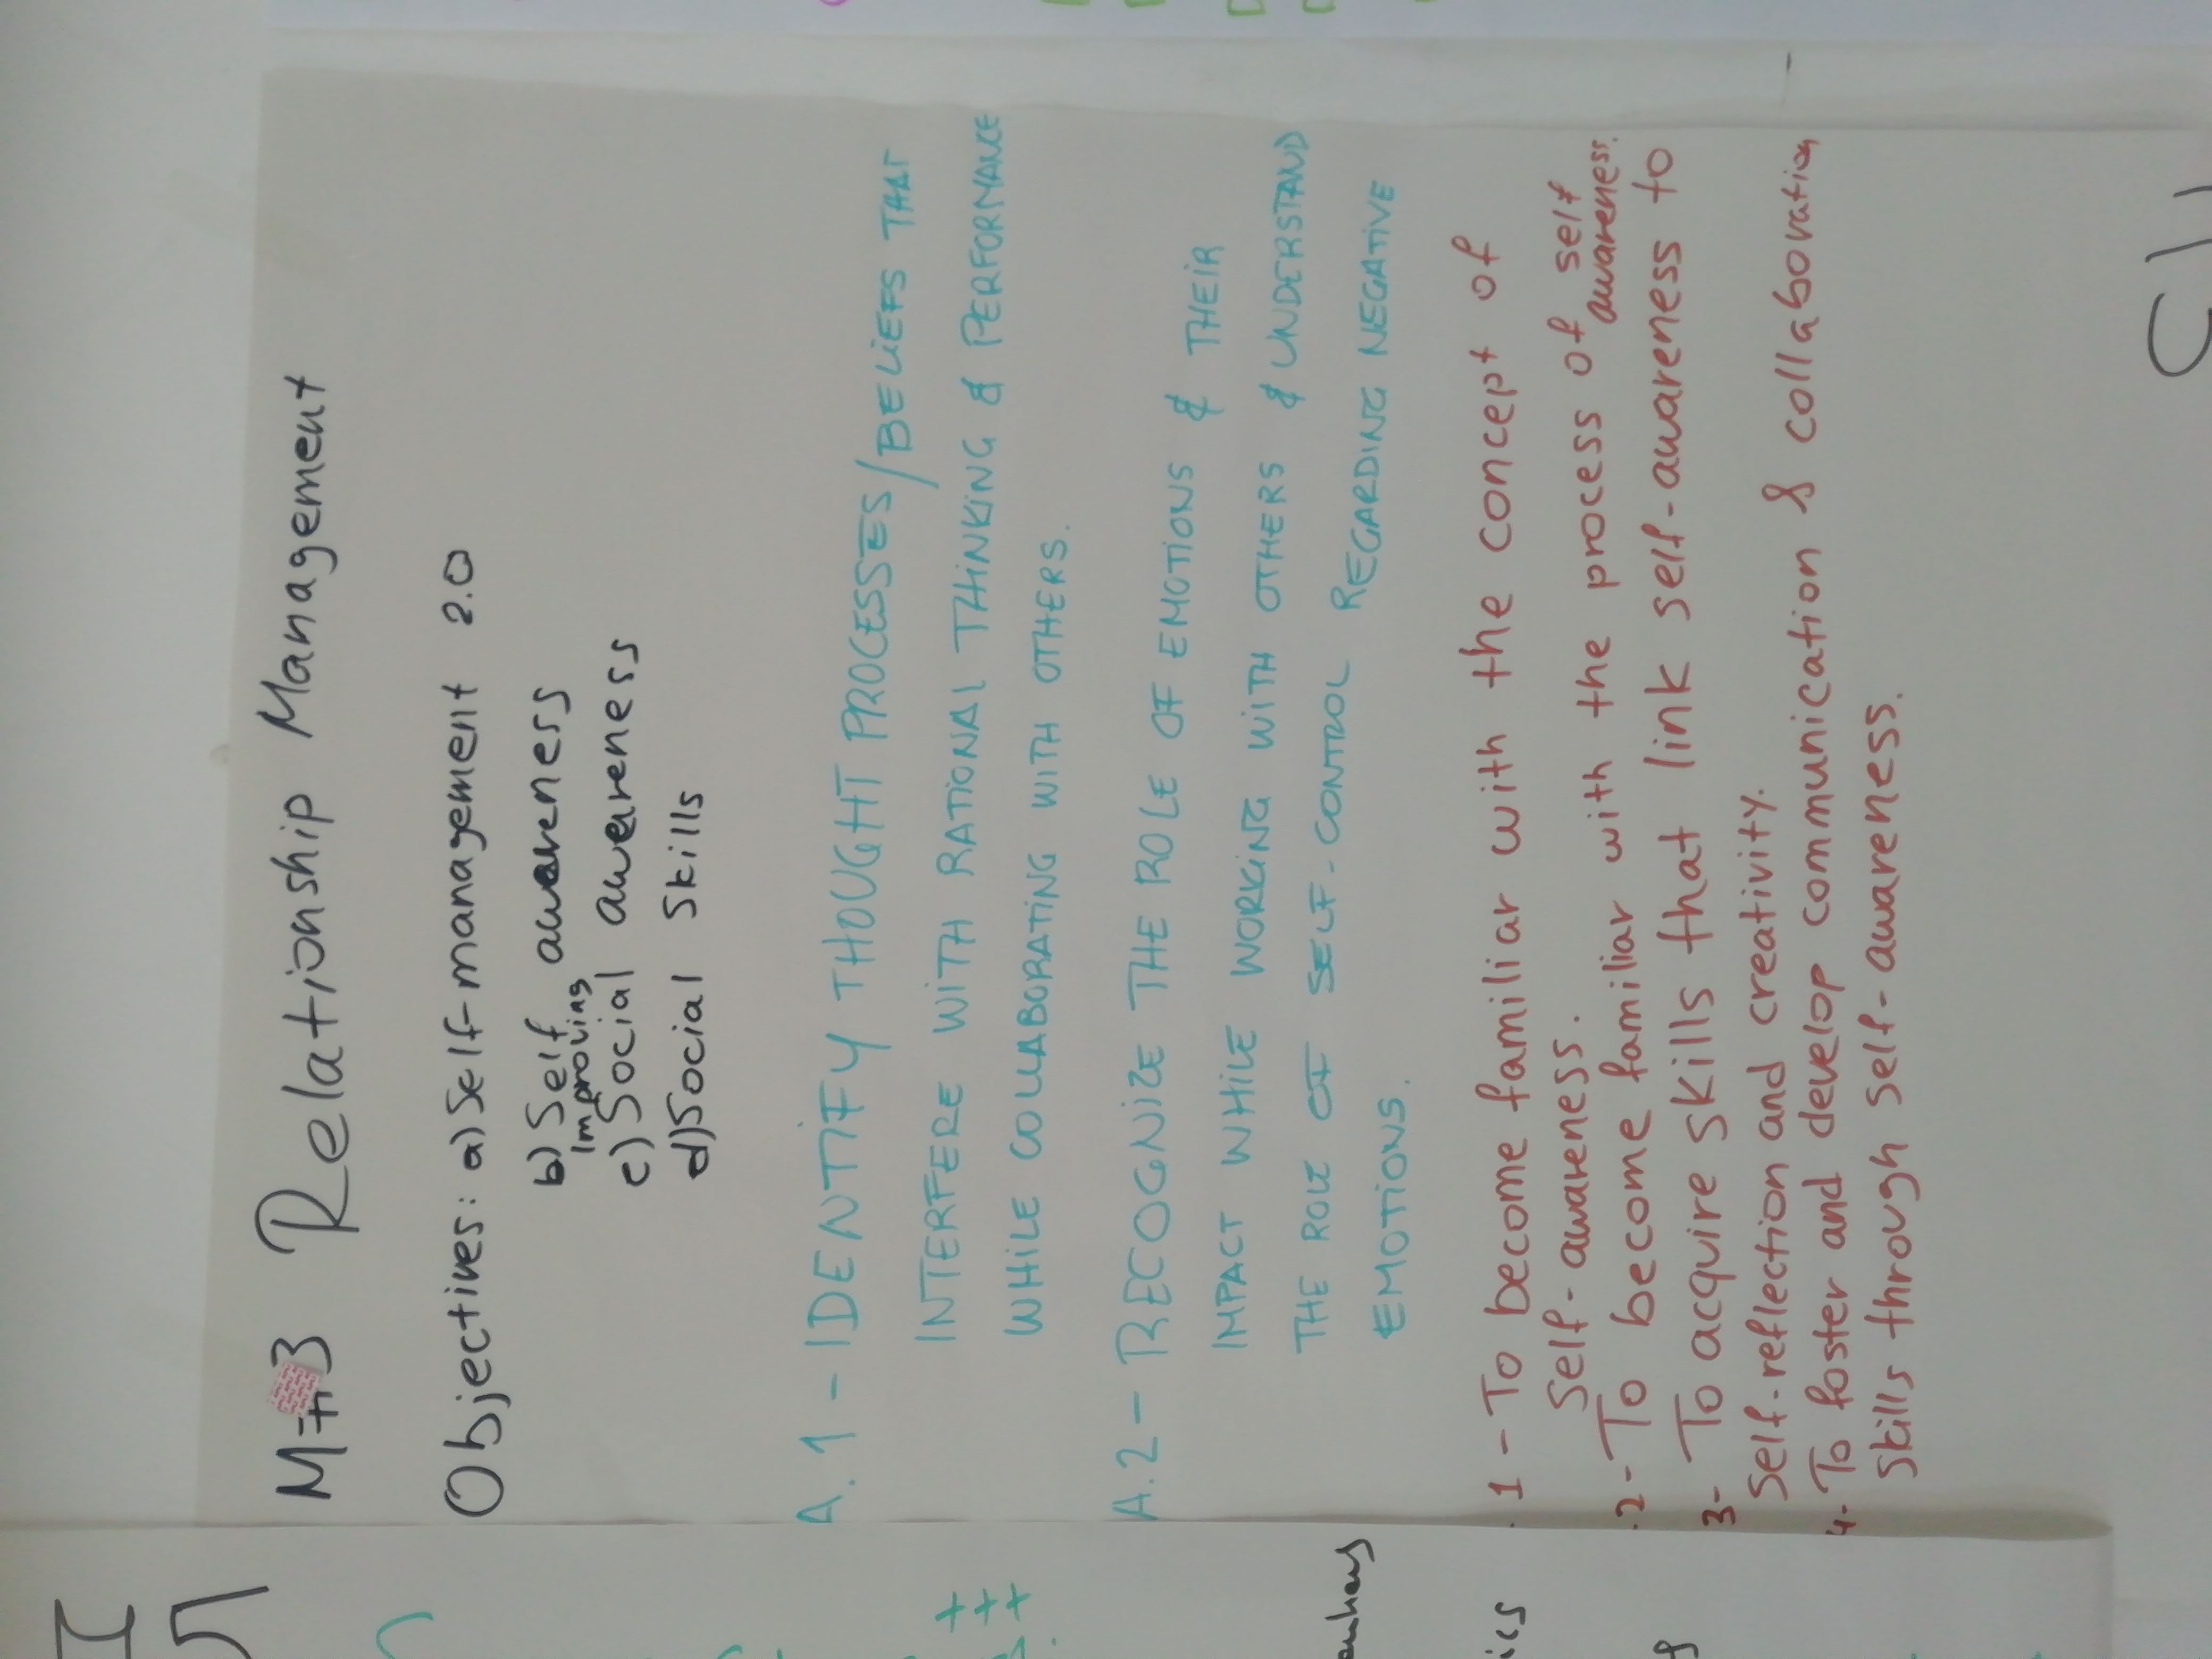 M#3 Relationship Management
Objectives: a) Self-management 2.0
b) Self awareness
Improving
c) Social awereness
d) Social Skills
A.1 - IDENTIFY THOUGHT PROCESSES/BELIEFS THAT
INTERFERE WITH RATIONAL THINKING & PERFORMANCE
WHILE COLLABORATING WITH OTHERS.
A.2 - RECOGNIZE THE ROLE OF EMOTIONS & THEIR
IMPACT WHILE WORKING WITH OTHERS & UNDERSTAND
THE ROLE OF SELF-CONTROL REGARDING NEGATIVE
EMOTIONS.
.1 - To become familiar with the concept of
Self-awareness.
.2- To become familiar with the process of self
awareness.
3- To acquire skills that link self-awareness to
Self-reflection and creativity.
4- To foster and develop communication & collaboration
skills through self-awareness.